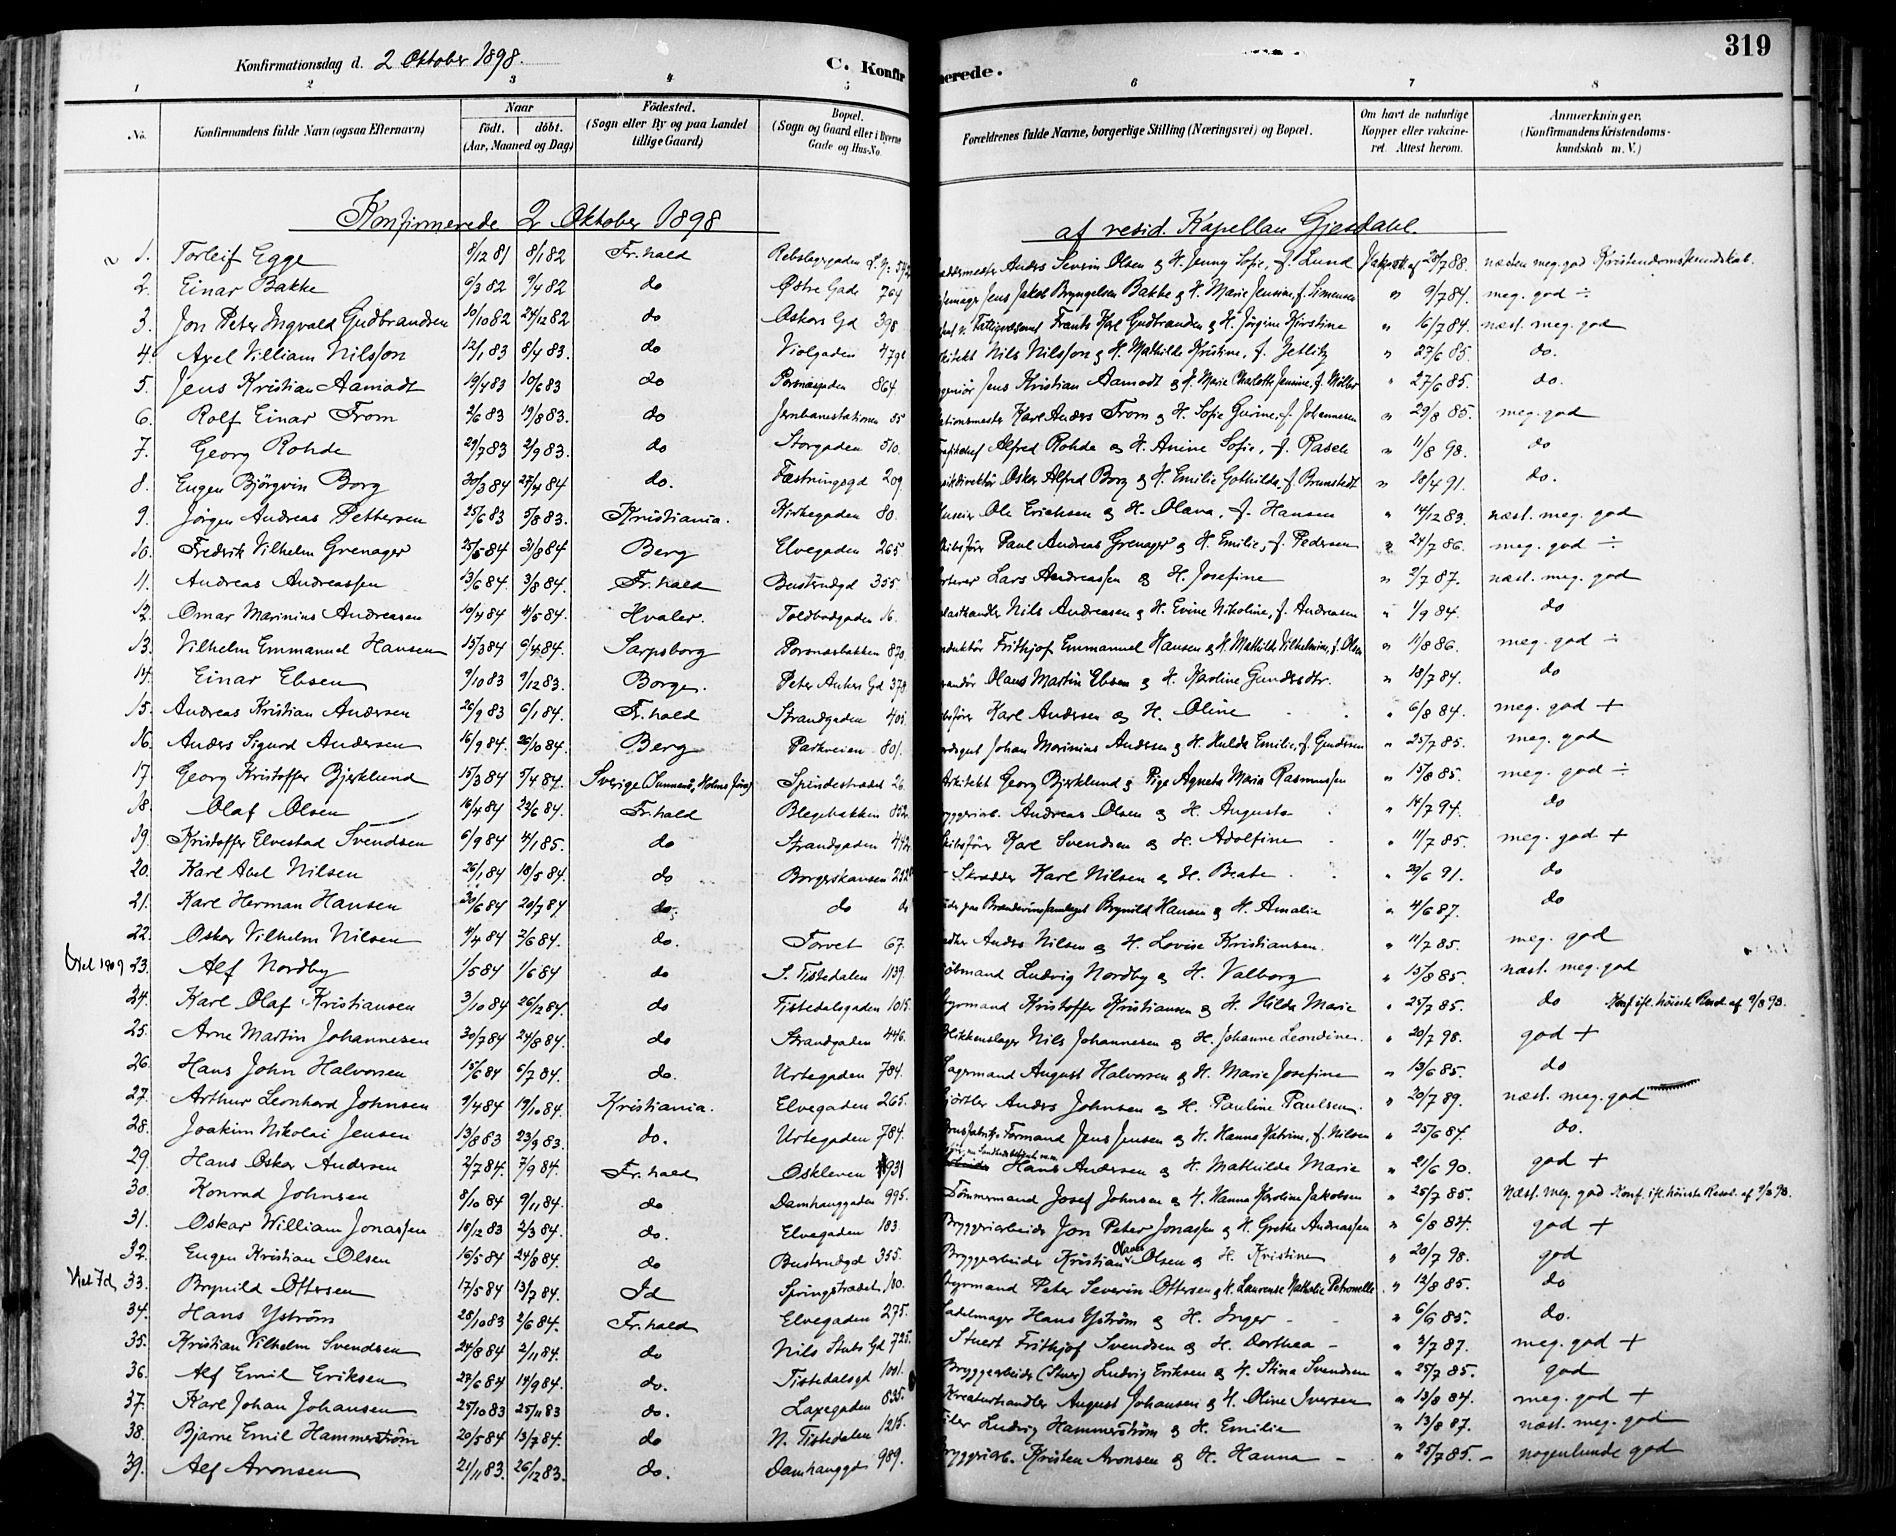 Konfirmationsdag d. 2 Oktober 1898. C. Konfir
merede. 319
1 2 3 4 5 6 7 8
No. Konfirmandens fulde Navn (ogsaa Efternavn) Naar født. døbt. (Aar, Maaned og Dag) Fødested. (Sogn eller By og paa Landet tillige Gaard) Bopæl. (Sogn og Gaard eller i Byerne Gade og Hus-No. Forældrenes fulde Navne, borgerlige Stilling (Næringsvei) og Bopæl. Om havt de naturlige Kopper eller vakcineret. Attest herom. Anmærkninger. (Konfirmandens Kristendomskundskab m. V.)
Konfirmerede 2 Oktober 1898 af resid. Kapellan Gjesdahl.
1. Torleif Egge 8/12 81 8/1 82 Fr.hald Rebslagergaden Anders Severin Olsen & H. Jenny Sofie, f. Lund 20/7 88. næsten meg. god Kristendomskundskab.
2. Einar Bakke 6/3 82 9/4 82 do Østre Gade 764 Jens Jakob Bryngelsen Bakke & H. Marie Jensine, f. Simensen " 9/7 84. meg. god ÷
3. Jon Peter Ingvald Gudbrandsen 10/10 82 24/12 82 do Oskars Gd 398 Frants Karl Gudbrandsen & H. Jörgine Kirstine " 16/7 84. næst. meg. god
4. Axel Villiam Nilsson 12/1 83 8/4 83. do Violgaden 479 Nils Nilsson & H. Mathilde Kristine, f. Zetlitz " 27/6 85. do.
5. Jens Kristian Aamodt 19/4 83 10/6 83 do 864 Jens Kristian Aamodt & H. Marie Charlotte Jensine, f. Møller " 27/6 85. do.
6. Rolf Einar From 2/6 83 19/8 83. do Jernbanestationen 55 Karl Anders From & H. Sofie Gurine, f. Johannesen " 29/8 85. meg. god
7. Georg Rohde 29/7 83 2/9 83. do Storgaden 510. Alfred Rohde & H. Anine Sofie, f. Rasch " 11/8 98. do
8. Eugen Björgvin Borg 30/3 84 27/4 84 do. Fæstningsgd 209. Oskar Alfred Borg & H. Emilie Gothilde, f. Brunstedt " 18/4 91. do.
9. Jörgen Andreas Pettersen 25/6 83 5/8 83. Kristiania. Kirkegaden 80. Ole Ericksen & H. Olava, f. Hansen " 14/12 83. næst. meg. god
10. Fredrik Vilhelm Grenager 25/6 84 31/8 84 Berg Elvegaden 265 Paul Andreas Grenager & H. Emilie, f. Pedersen " 24/7 86. meg. god ÷
11. Andreas Andreassen 13/6 84. 3/8 84. Fr.hald Busterudgd 355. Lars Andreassen & H. Josefine " 2/7 87. næst. meg. god
12. Omar Marinius Andreasen 10/4 84 4/5 84. Hvaler. Toldbodgaden 16. Nils Andreasen & H. Evine Nikoline, f. Andreasen " 1/9 84. do
13. Vilhelm Emmanuel Hansen 15/3 84 6/4 84. Sarpsborg Porsnæsbakken 870. Frithjof Emmanuel Hansen & H. Mathilde Vilhelmine, f. Olsen " 11/8 86. meg. god ÷
14. Einar Ebsen 9/10 83 9/12 83. Borge. Peter Ankers Gd 378. Olaus Martin Ebsen & H. Karoline Gundersdtr. " 18/7 84. do
15. Andreas Kristian Andersen 26/9 83 6/1 84. Fr.hald Strandgaden 401. Karl Andersen & H. Oline " 6/8 84. meg. god +
16. Anders Sigurd Andersen 16/9 84. 26/10 84. Berg Parkveien 801. Johan Marinius Andersen & H. Hulda Emilie, f. Gundersen " 25/7 85. meg. god
17. Georg Kristoffer Bjerklund 15/3 84 5/4 84. Sverige Spindestrædet 26. Arkitekt Georg Bjerklund & Pige Agneta Maria Rasmussen " 15/8 85. meg. god ÷
18. Olaf Olsen 16/4 84 22/6 84. Fr.hald Blegebakken 852. Andreas Olsen & H. Augusta " 14/7 94. do
19. Kristoffer Elvestad Svendsen 6/9 84 4/1 85. do Strandgaden 442. Karl Svendsen & H. Adolfine " 11/7 85. meg. god +
20. Karl Axel Nilsen 26/1 84 18/5 84. do Borgerskansen 232 Skrædder Karl Nilsen & H. Beate " 20/6 91. do
21. Karl Herman Hansen 20/6 84 20/7 84 do. do do Brynild Hansen & H. Amalie " 4/6 87. do
22. Oskar Vilhelm Nilsen 4/4 84 2/6 84. do. Torvet 67. Anders Nilsen & H. Lovise Kristiansen. " 11/7 85. meg. god
23. Alf Nordby 1/5 84 1/6 84 do S. Tistedalen 1139. Ludvig Nordby & H. Valborg " 15/8 85. næst. meg. god
24. Karl Olaf Kristiansen 3/10 84 26/12 84. do Tistedalsgaden 1015. Kristoffer Kristiansen & H. Hilda Marie " 25/7 85. do Konf. ifl. höieste Resol. af 9/8 98.
25. Arne Martin Johannesen 30/7 84 24/8 84. do Strandgaden 446. Blikkenslager Nils Johannesen & H. Johanne Leondine. " 20/7 98. god +
26. Hans John Halvorsen 15/6 84 6/7 84. do. Urtegaden 784. Lagermand August Halvorsen & H. Marie Josefine " 13/6 85. do
27. Arthur Leonhard Johnsen 9/4 84 19/10 84. Kristiania. Elvegaden 265. Anders Johnsen & H. Pauline Paulsen. " 20/7 89. næst. meg. god
28. Joakim Nikolai Jensen 13/8 83 23/9 83. do. Urtegaden 784. Formand Jens Jensen & H. Hanna Katrine, f. Nilsen " 25/6 87. do.
29. Hans Oskar Andersen 2/7 84. 7/9 84. Fr.hald Oskleven 931 Hans Andersen & H. Mathilde Marie " 21/6 90. god +
30. Konrad Johnsen 8/10 84 9/11 84. do Damhauggaden 995. Tömmermand Josef Johnsen & H. Hanna Karoline Jakobsen " 25/7 85. Næst. meg. god Konf. ifl. höieste Resol. af 9/8 98.
31. Oskar William Jonassen 18/12 83 2/3 84. do. Elvegaden 183. Bryggeriarbeider Jon Peter Jonassen & H. Grethe Andreassen " 6/8 84. god +
32. Eugen Kristian Olsen 16/5 84 24/8 84. do Busterudgd 355. Bryggearbeider Kristian Olaus Olsen & H. Kristine " 20/7 98. god
33. Brynild Ottersen 17/5 84 13/7 84. Id Springstrædet 100. Styrmand Peter Severin Ottersen & H. Laurense Nathalie Petronelle. " 12/8 85. do
34. Hans Yström 28/10 83 2/6 84. Fr.hald Elvegaden 275. Sadelmager Hans Yström & H. Inger " 6/6 85. do.
35. Kristian Vilhelm Svendsen 24/8 84 2/11 84. do Nils Stubs Gd 725. Stuert Frithjof Svendsen & H. Dorthea " 2/7 87. meg. god +
36. Alf Emil Eriksen 27/6 84 14/9 84. do. Tistedalsgd 1001. Bryggearbeider (Stuer) Ludvig Eriksen & H. Stina Svendsen " 25/7 85. god
37. Karl Johan Johansen 25/10 83 25/11 83 do. Laxegaden 835. Kreaturhandler August Johansen & H. Oline Iversen " 13/8 84. meg. god +
38. Bjarne Emil Hammerström 20/5 84 13/7 84. do N. Tistedalen 1215. Ludvig Hammerström & H. Emilie " 13/8 87. næst. meg. god
39. Alf Aronsen 21/11 83. 26/12 83. do. Damhauggd 989. Bryggeriarb. Kristen Aronsen & H. Hanna " 25/7 85. nogenlunde god